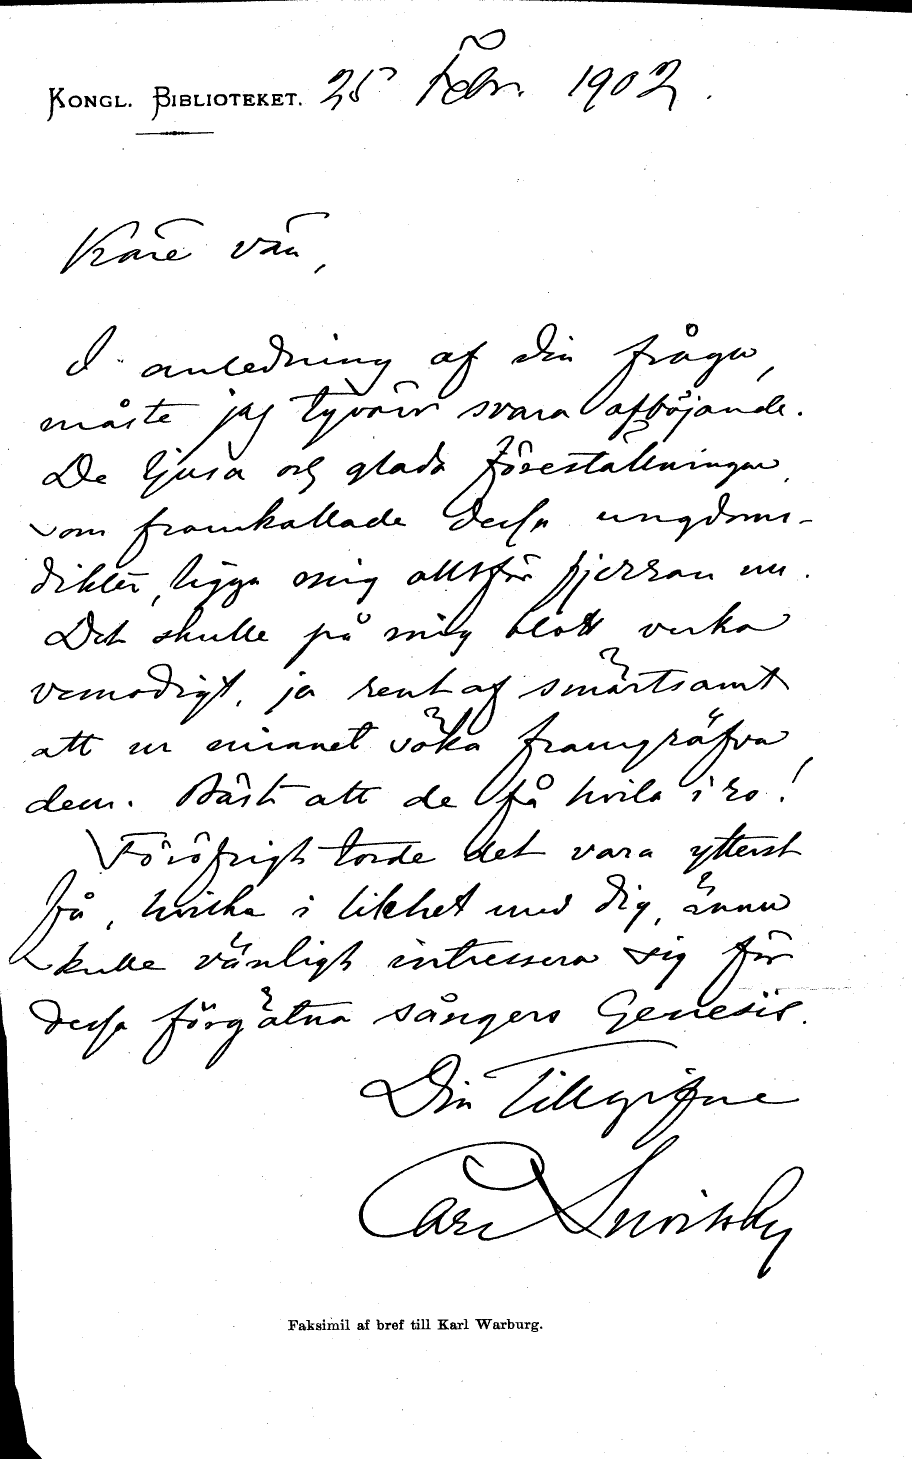 KONGL. BIBLIOTEKET. 25 Febr. 1902.
Käre vän,
I anledning af din fråga,
måste jag tyvärr svara afböjande.
De ljusa och glada föreställningar,
som framkallade dessa ungdoms-
dikter, ligga mig alltför fjerran nu.
Det skulle på mig blott verka
vemodigt, ja rent af smärtsamt
att ur minnet söka framgräfva
dem. Bäst att de få hvila i ro!
Föröfrigt torde det vara ytterst
få, hvilka i likhet med dig, ännu
skulle vänligt intressera sig för
dessa förgätna sångers Genesis.
Din tillgifne
Carl Snoilsky
Faksimil af bref till Karl Warburg.